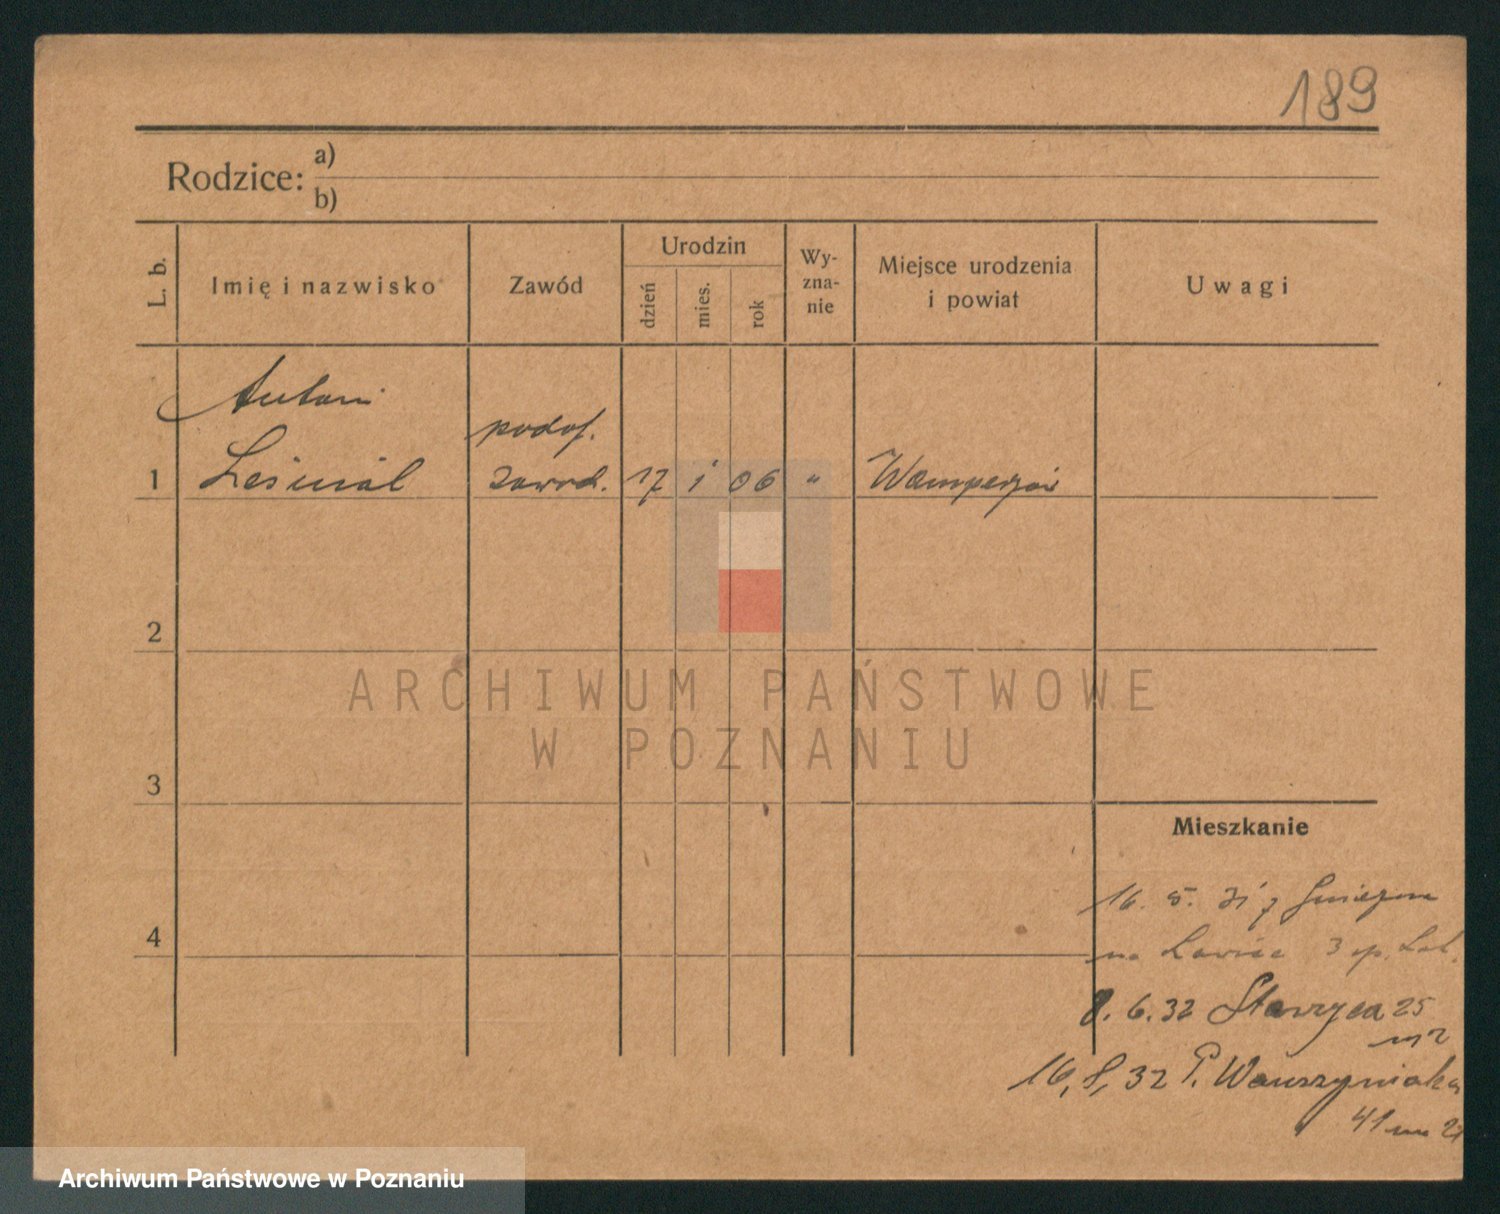 189
Rodzice: a)
b)
L. b.
Imię i nazwisko
Zawód
Urodzin
dzień
mies.
rok
Wy-
zna-
nie
Miejsce urodzenia
i powiat
Uwagi
Antoni
podof.
1 Leśniak zawod. 17 1 06 "
2
ARCHIWUM PAŃSTWOWE
W POZNANIU
3
Mieszkanie
16. 5. 31 z Gniezna
4
na Ławica 3 p. Lot.
8. 6. 32 Starzyca 25
m 2
16, 8, 32 P. Wawrzyniaka
41 m 21
Archiwum Państwowe w Poznaniu